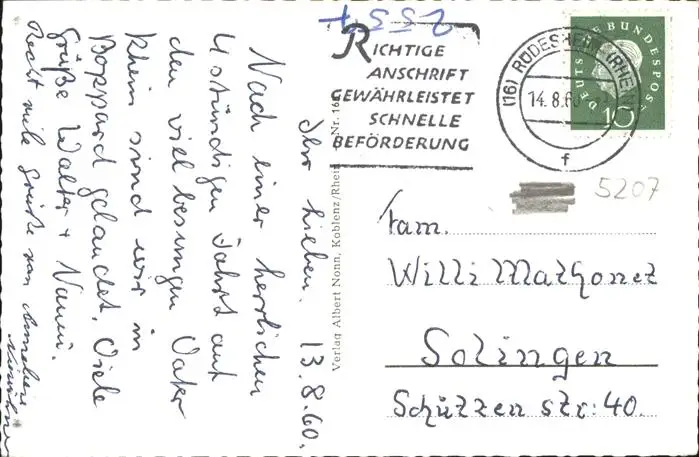 Ihr Lieben. 13.8.60.
Nach einer herrlichen
4 stündigen Fahrt auf
den viel besungen Vater
Rhein sind wir in
Boppard gelandet. Viele
Grüße Walter + Nanni.
Recht viele Grüße von Anneliese
2554
RICHTIGE
ANSCHRIFT
GEWÄHRLEISTET
SCHNELLE
BEFÖRDERUNG
(16) RÜDESHEIM (RHEIN)
14.8.60
f
DEUTSCHE BUNDESPOST
10
5207
Verlag Albert Nonn, Koblenz/Rhein Nr. 16
Fam.
Willi Mathonet
Solingen
Schützen str: 40.